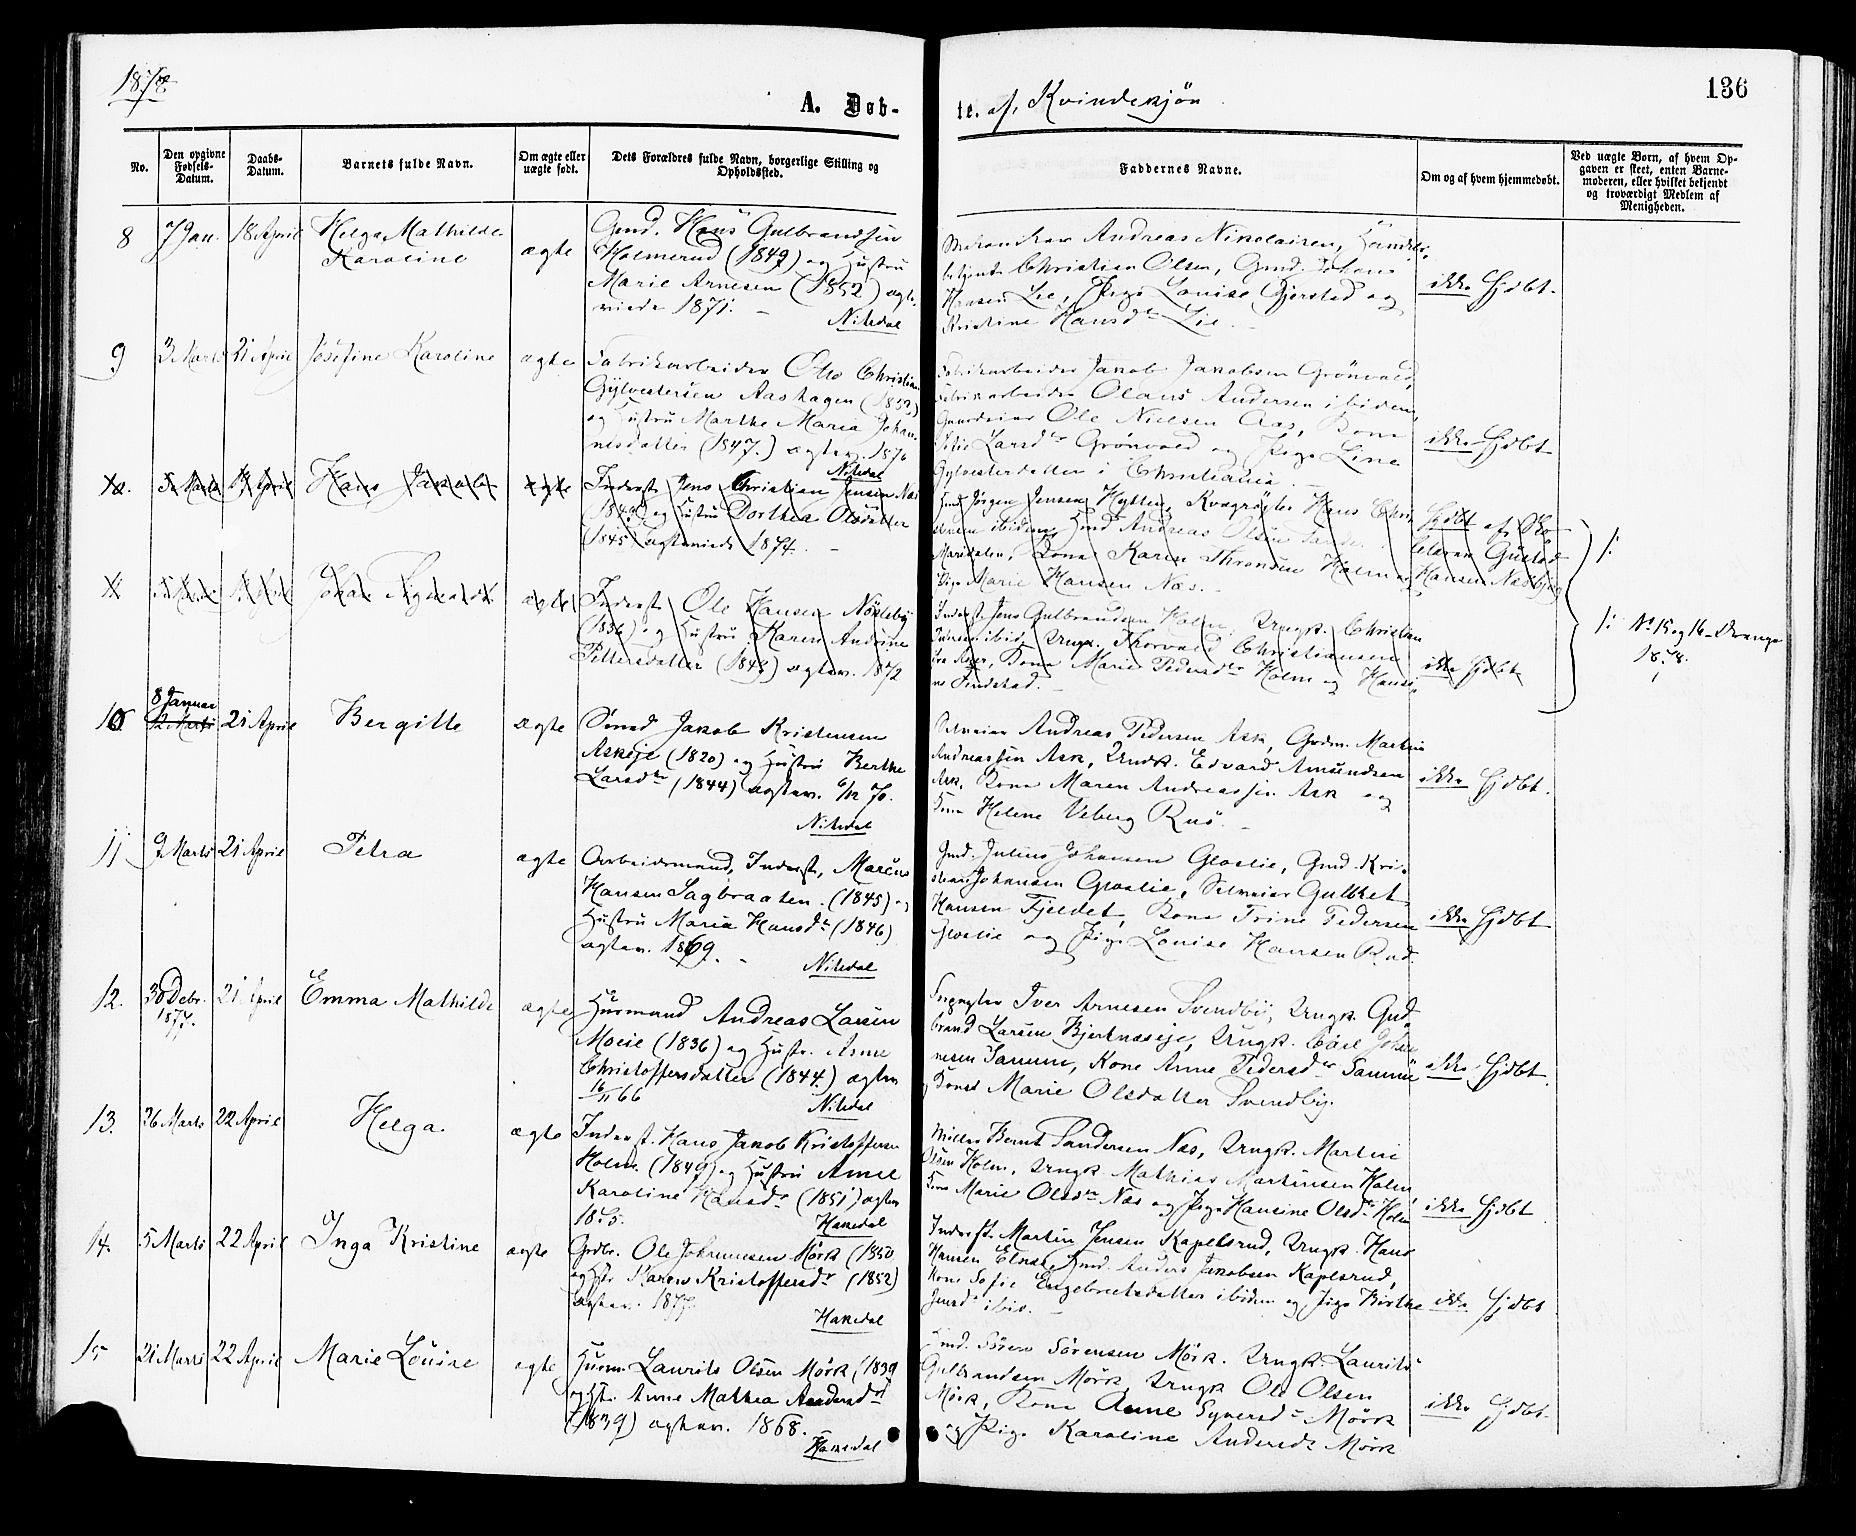 1878
A. Døb-
te. af Kvindekjøn
136
No.
Den opgivne
Fødsels-
Datum.
Daabs-
Datum.
Barnets fulde Navn.
Om ægte eller
uægte født.
Dets Forældres fulde Navn, borgerlige Stilling og
Opholdssted.
Faddernes Navne.
Om og af hvem hjemmedøbt.
Ved uægte Børn, af hvem Op-
gaven er skeet, enten Barne-
moderen, eller hvilket bekjendt
og troværdigt Medlem af
Menigheden.
8
7 Jan.
18 April
Helga Mathilde
Karoline
ægte
Gmd. Hans Gulbrandsen
Holmerud (1849) og Hustru
Marie Arnesen (1852) ægte-
viede 1871.
Nitedal
Andreas Nikolaisen, Handels-
betjent Christian Olsen, Gmd. Johan
Hansen Lie, Pige Louise Gjerstad og
Kristine Hansdtr Lie.
ikke Hjdbt.
9
3 Marts
21 April
Josefine Karoline
ægte
Fabrikarbeider Otto Christian
Gylvestersen Aashagen (1852)
og Hustru Marthe Maria Johan-
nesdatter (1847.) ægtev. 1876
Nitedal
Fabrikarbeider Jakob Jakobsen Grönvold,
Fabrikarbeider Olaus Andersen ibidem,
Gaardeier Ole Nielsen Aas, Kone
Larsdtr Grönvold og Pige Line
Gylvesterdatter i Christiania.
ikke Hjdbt
Hans Jakob
ægte
Inderst Jens Christian Jensen Næs
(1849) og Hustru Dorthea Olsdatter
(1845) ægteviede 1874.
Gmd Jörgen Jensen Hytten, Hans Chri-
ibidem, Gmd Andreas Olsen
Maridalen, Kone Karen Thronsen Holm og
Pige Marie Hansen Næs.
Hjdbt af Sko-
Gustad
Hansen Næs
Johan
ægte
Inderst Ole Hansen
(1836) og Hustru Karen Andrine
Pettersdatter (1843) ægtev. 1872
Inderst Jens Gulbrandsen Holm, Ungk. Christian
Jensen ibid, Ungk. Thorvald Christiansen
Kone Marie Pedersdtr Holm og
ikke Hjdbt
/:
/: No 15 og 16 Drenge
1878.
10
8 Januar
12 Marts
21 April
Bergitte
ægte
Jakob Kristensen
Askeje (1820) og Hustru Berthe
Larsdtr (1844) ægtev. 6/12 70.
Nitedal
Selveier Andreas Pedersen Ask, Grdm. Martin
Andreassen Ask, Ungk. Edvard Amundsen
Ask, Kone Maren Andreassen Ask og
Kone Helene Veberg
ikke Hjdbt.
11
9 Marts
21 April
Petra
ægte
Arbeidsmand, Inderst, Marcus
Hansen Sagbraaten. (1845) og
Hustru Maria Hansdtr (1846)
ægtev. 1869.
Nitedal
Gmd. Julius Johansen Gloslie, Gmd. Kri-
stian Johansen Gloslie, Selveier Gulbket
Hansen Fjeldet, Kone Trine Pedersen
Gloslie og Pige Louise Hansen Rud.
ikke Hjdbt
12.
30 Debr.
1877.
21 April
Emma Mathilde
ægte
Husmand Andreas Larsen
Moeie (1836) og Hustr. Anne
Christoffersdatter (1844.) ægtev
16/11 66
Nitedal
Iver Arnesen Svendby, Ungk. Gud-
brand Larsen Bjertnæseje, Ungk. Carl Johan-
nesen Kone Anne Pedersdtr
Marie Olsdatter Svendby.
ikke Hjdbt.
13.
26 Marts
22 April
Helga.
ægte
Inderst. Hans Jakob Kristoffersen
Holm. (1849) og Hustru Anne
Karoline Hansdtr (1851) ægtev
1875.
Hakedal
Møller Bernt Sandersen Næs, Ungk. Martin
Olsen Holm, Ungk. Mathias Martinsen Holm,
Kone Marie Olsdtr Næs og Pige Hansine Olsdtr Holm
ikke Hjdbt
14.
5 Marts
22 April
Inga Kristine
ægte
Grdbr. Ole Johannesen Mörk (1850
og Hstr Karen Kristoffersdtr (1852)
ægtev. 1877.
Hakedal
Inderst. Martin Jensen Kapelsrud, Ungk. Hans
Hansen Elnæs, Gmd. Anders Jakobsen Kapelsrud,
Kone Sofie Engebretsdatter ibidem og Pige Berthe
Jensdtr ibid.
ikke Hjdbt
15
21 Marts
22 April
Marie Louise
ægte
Husm. Laurits Olsen Mörk (1839
og Hstr. Anne Mathea Andersdtr
(1839) ægtev. 1868.
Hakedal
Gmd. Sören Sörensen Mörk. Ungk. Laurits
Gulbrandsen Mörk, Ungk Ole Olsen
Mörk, Kone Anne Syversdtr Mörk
og Pige Karoline Andersdtr Mörk
ikke Hjdbt.